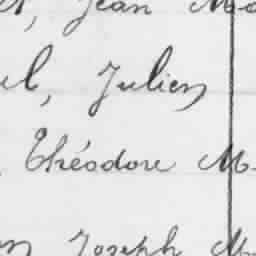 , Jean
, Julien
, Théodore M
Joseph M